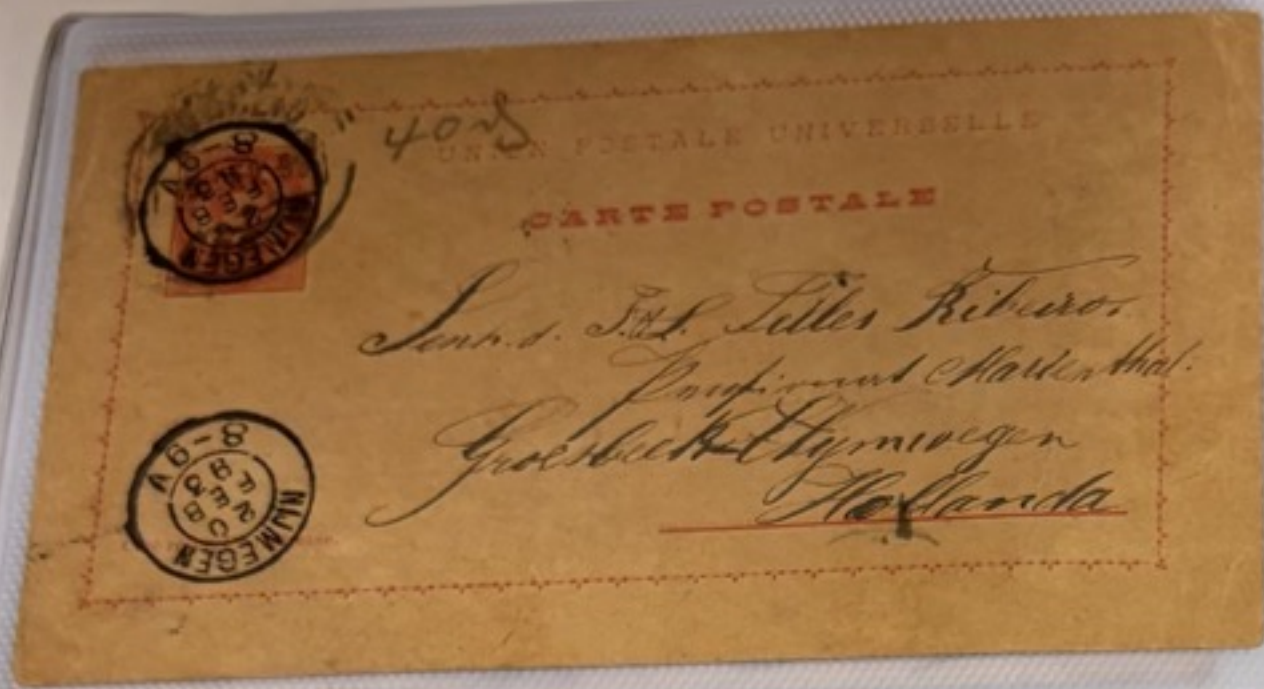 40 rs
UNION POSTALE UNIVERSELLE
CARTE POSTALE
NIJMEGEN 8-9V FEB
Telles Ribeiro.
Marienthal.
Groesbeek Nymwegen
Hollanda
NIJMEGEN 8-9V FEB